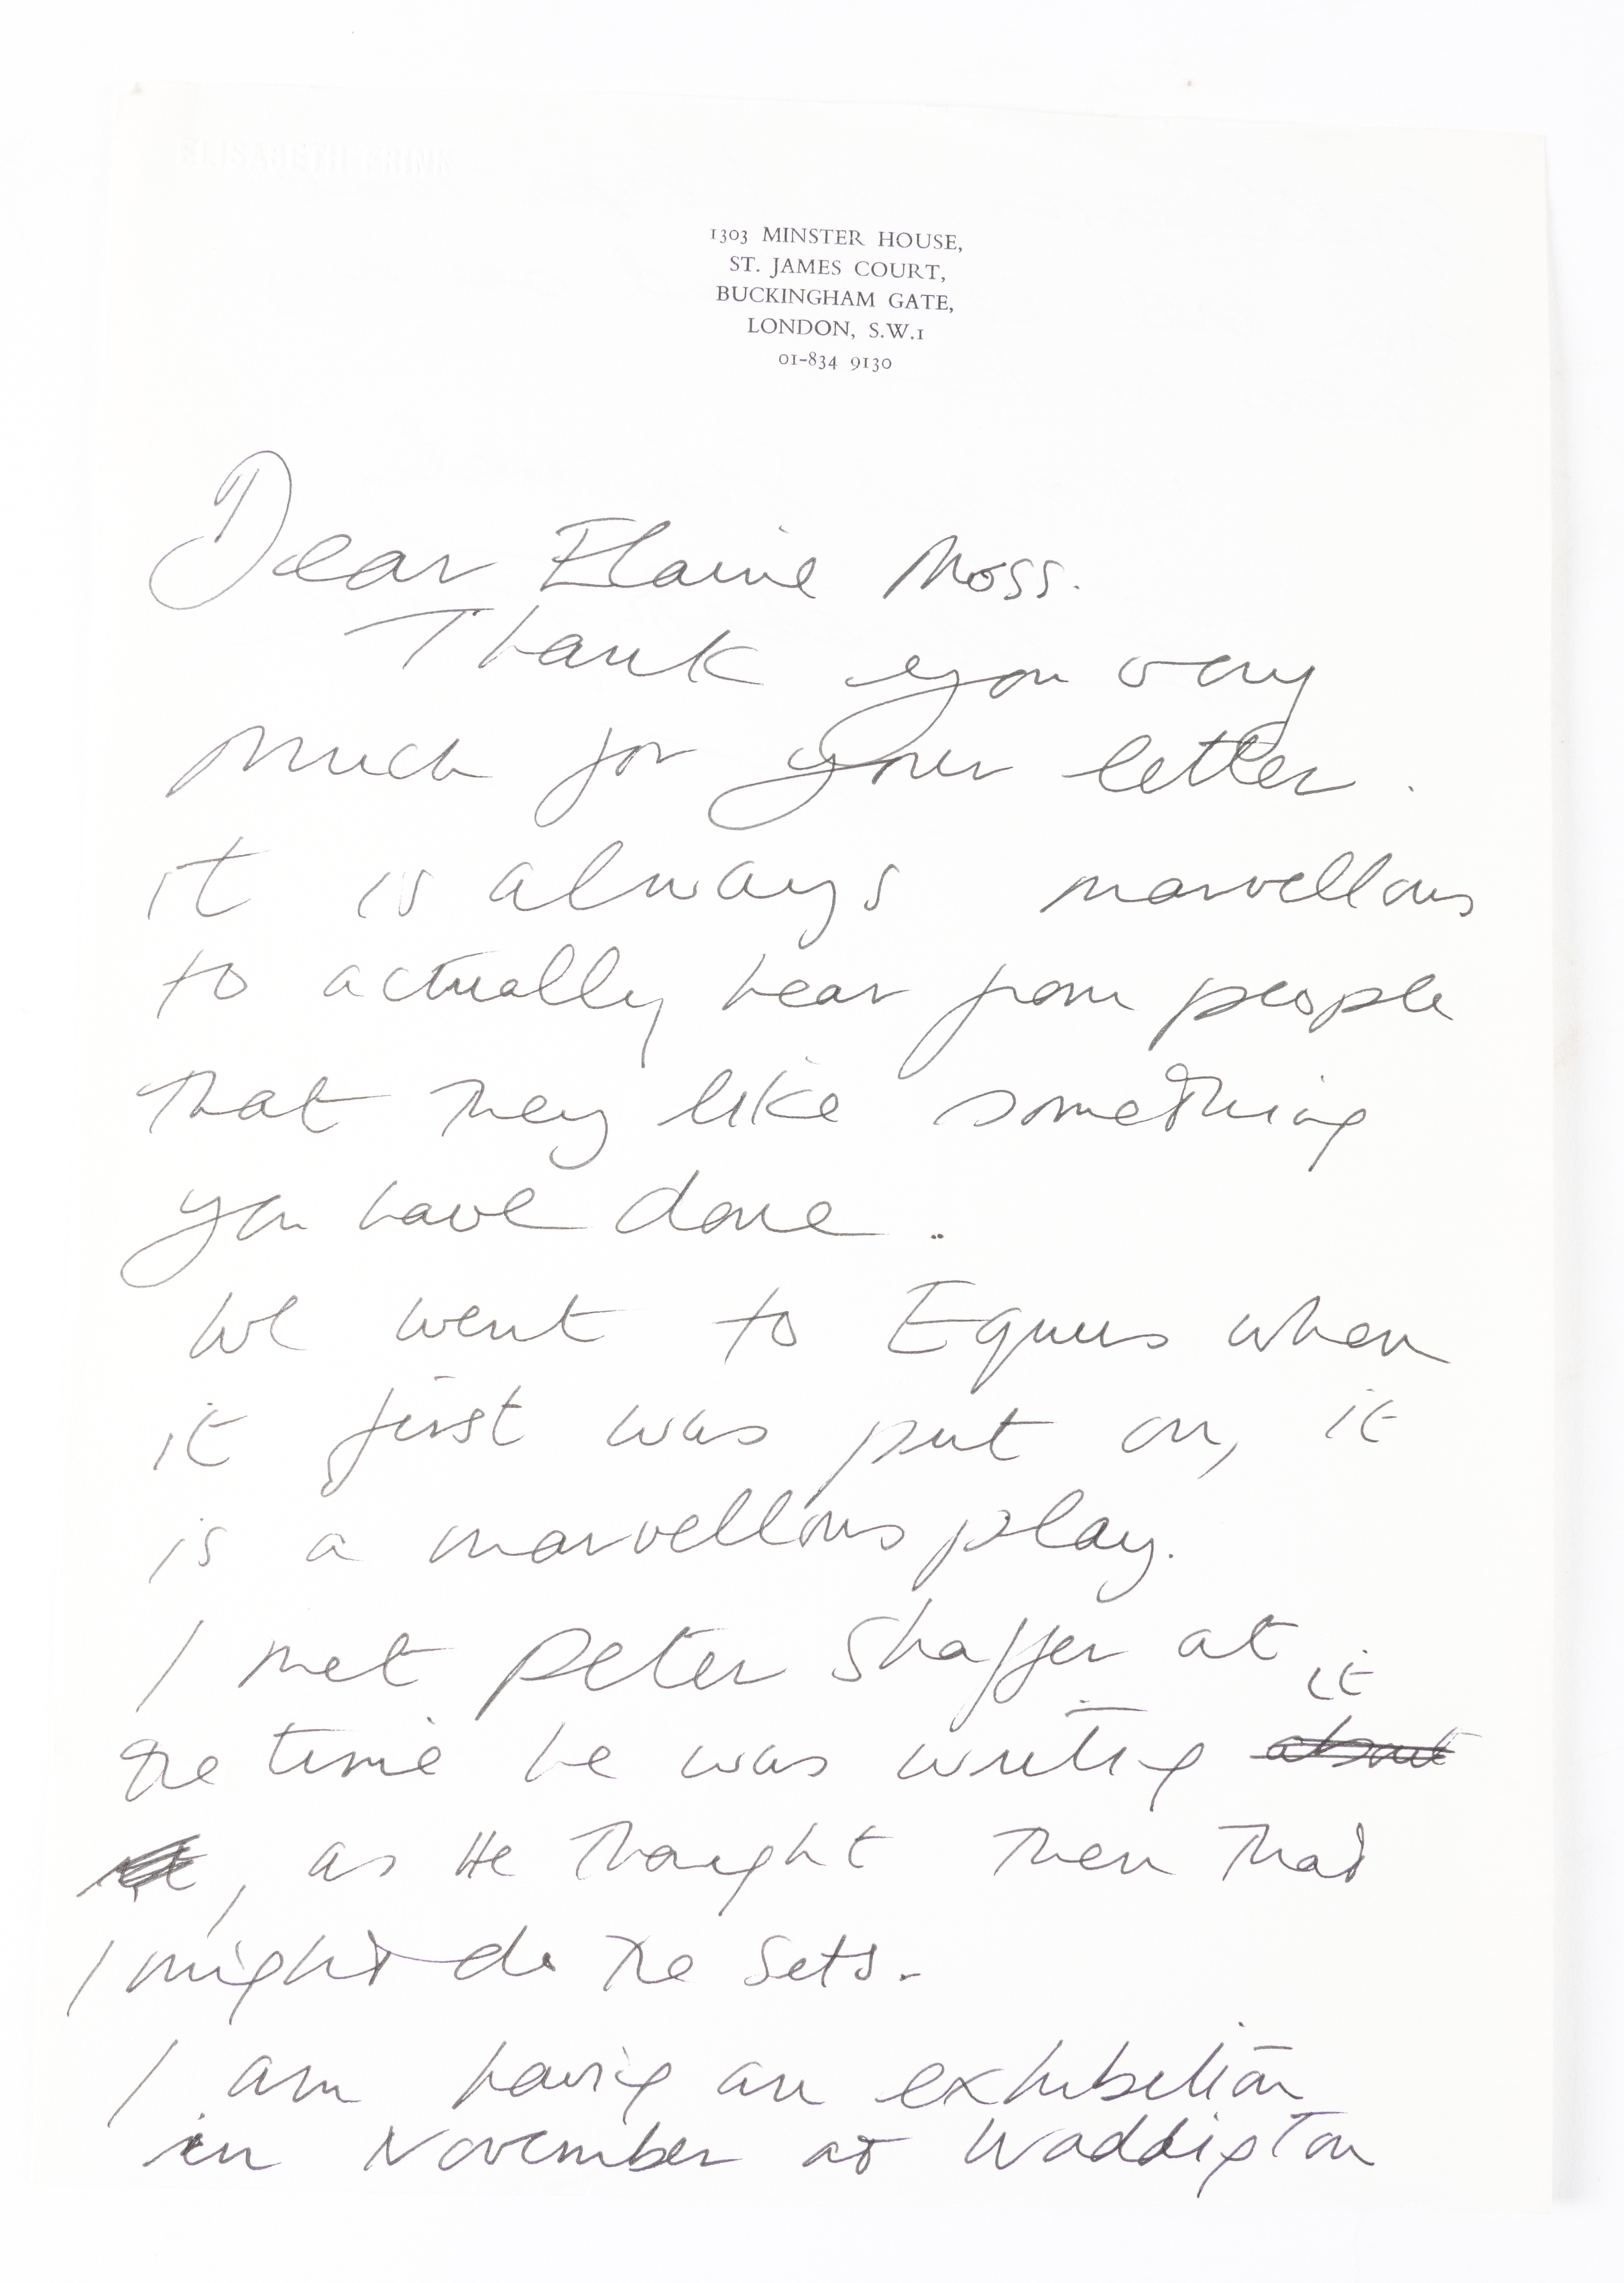 ELISABETH FRINK
1303 MINSTER HOUSE,
ST. JAMES COURT,
BUCKINGHAM GATE,
LONDON, S.W.1
01-834 9130
Dear Elaine Moss.
Thank you very
much for your letter.
it is always marvellous
to actually hear from people
that they like something
you have done.
We went to Equus when
it first was put on, it
is a marvellous play.
I met Peter Shaffer at
the time he was writing it about
, as He thought then that
I might do the sets.
I am having an exhibition
in November at Waddington